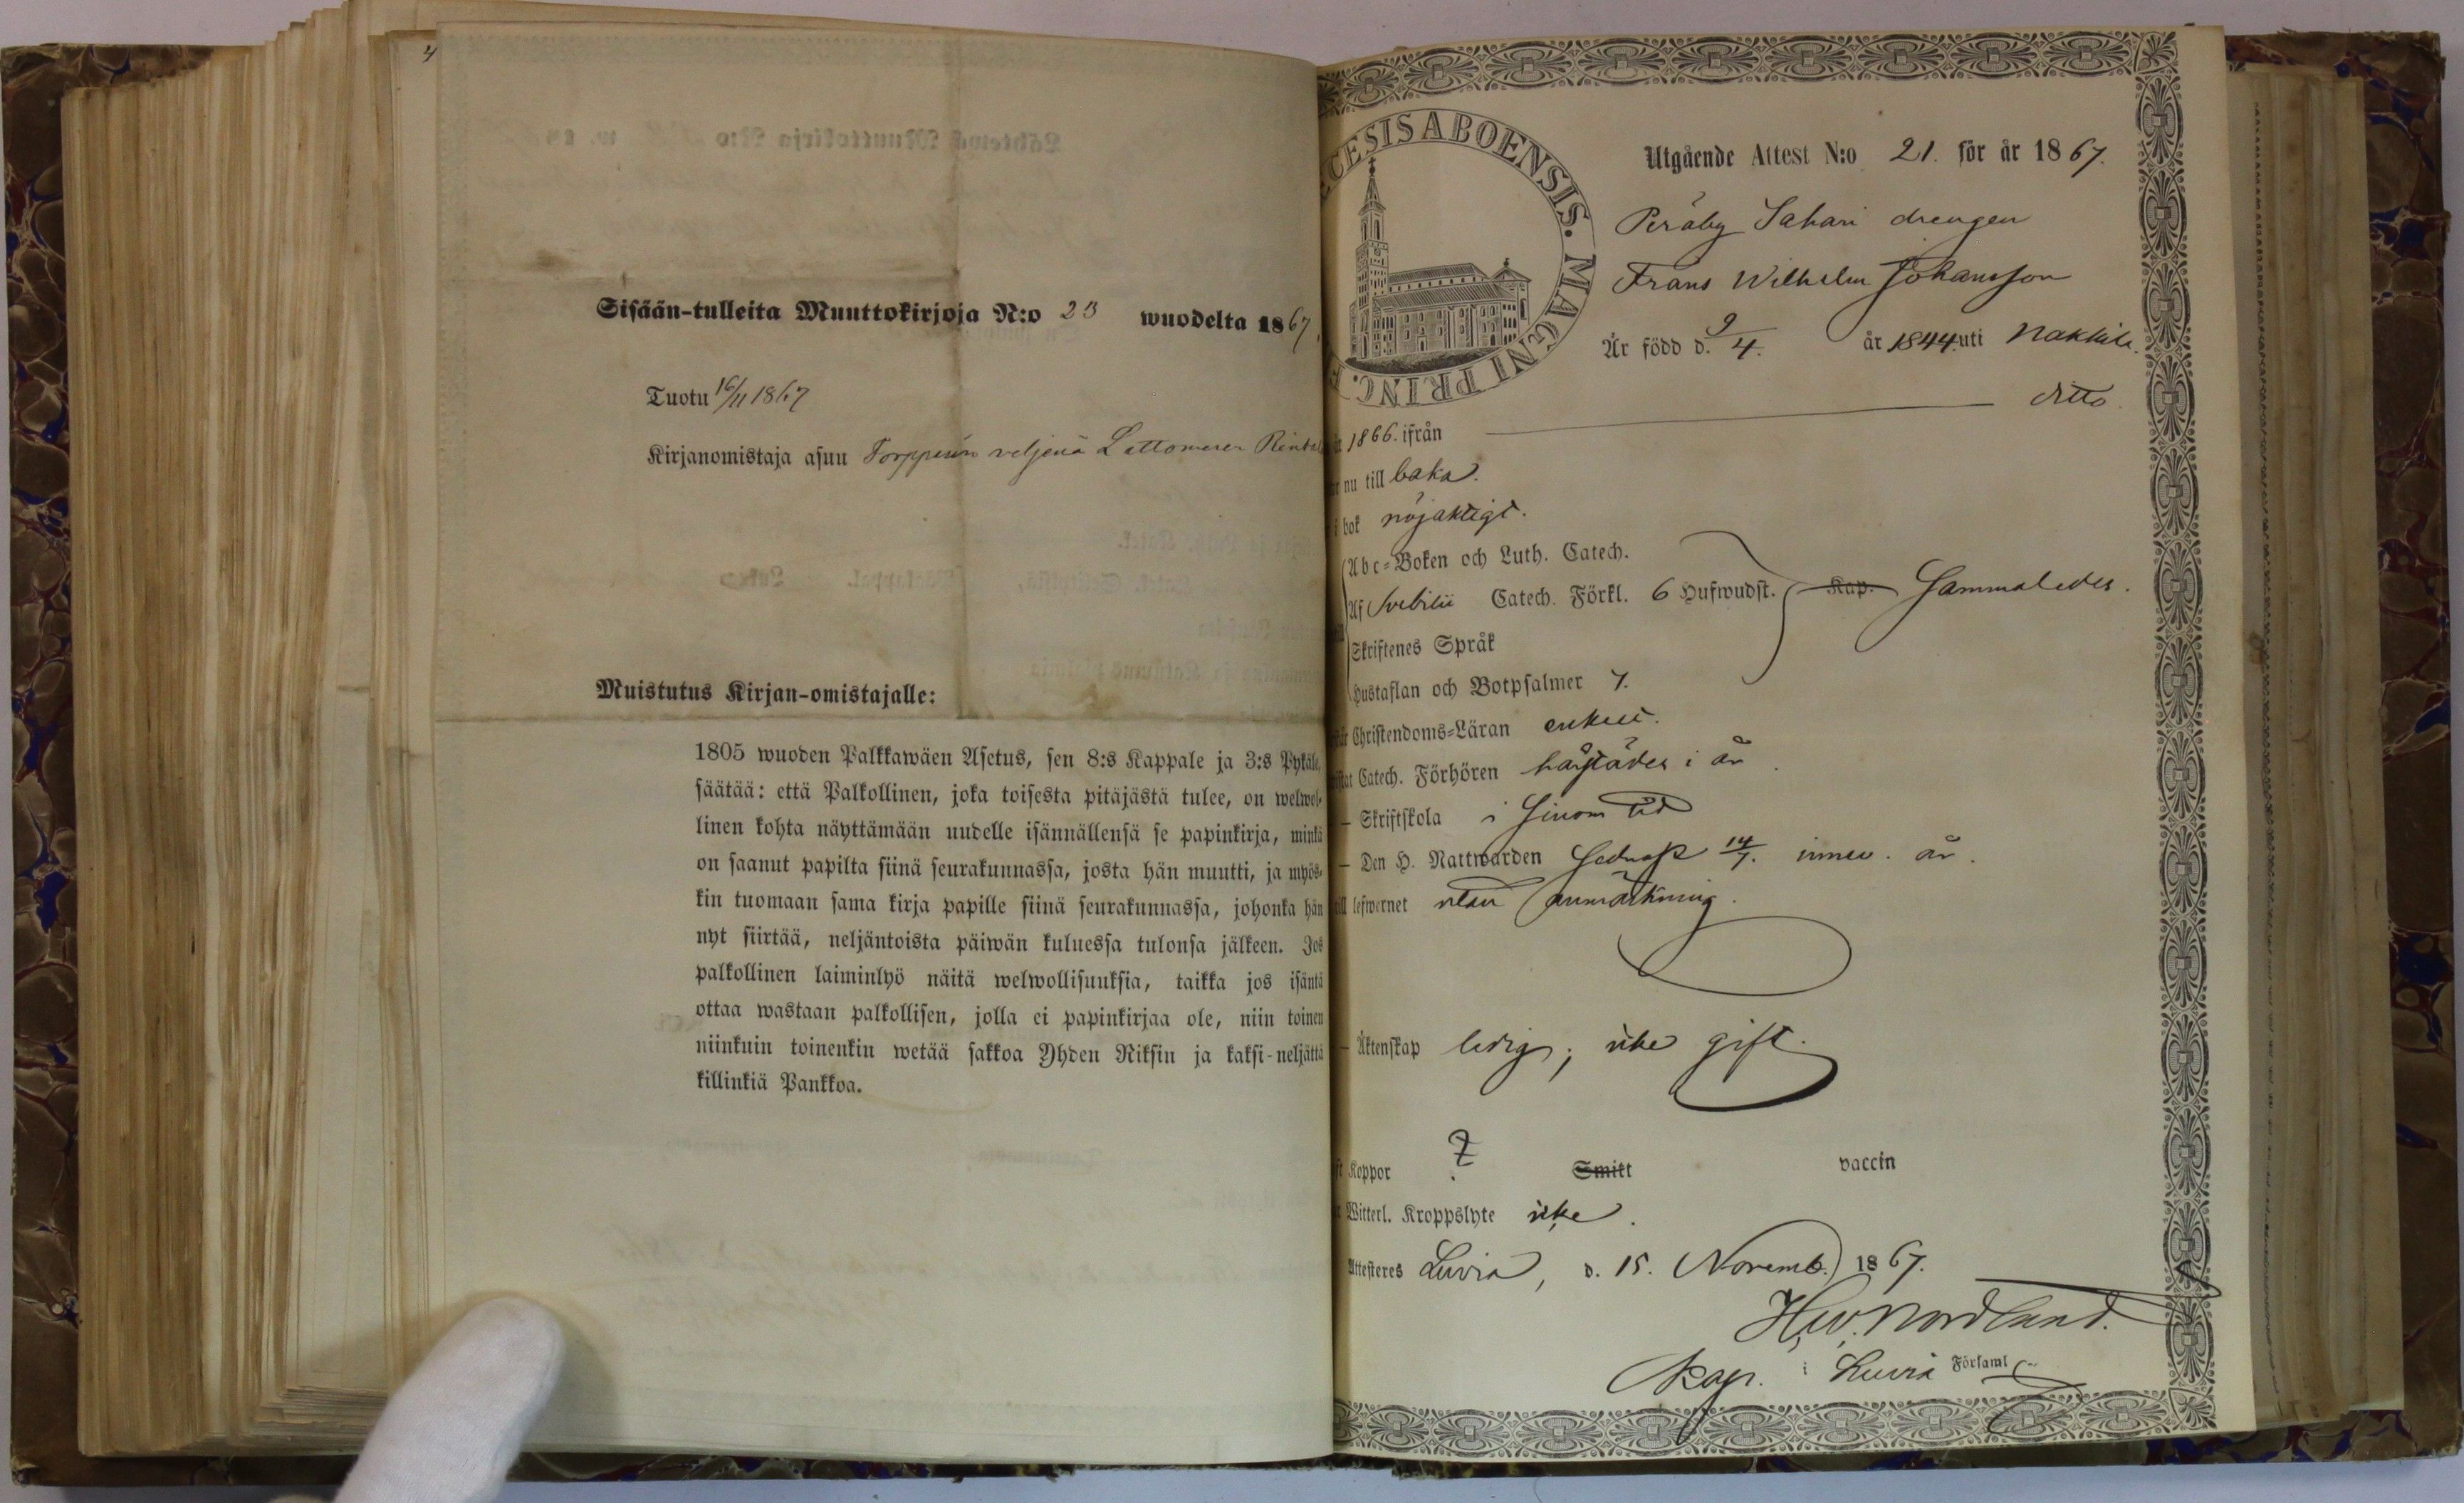 4
Sisään-tulleita Muuttokirjoja N:o 23 wuodelta 1867
Tuotu 16/11 1867
Kirjanomistaja asuu Torpparin veljenä Lattomeren
Muistutus Kirjan-omistajalle:
1805 wuoden Palkkawäen Asetus, sen 8:s Kappale ja 3:s Pykäle,
säätää: että Palkollinen, joka toisesta pitäjästä tulee, on welwol-
linen kohta näyttämään uudelle isännällensä se papinkirja, minkä
on saanut papilta siinä seurakunnassa, josta hän muutti, ja myös-
kin tuomaan sama kirja papille siinä seurakunnassa, johonka hän
nyt siirtää, neljäntoista päiwän kuluessa tulonsa jälkeen. Jos
palkollinen laiminlyö näitä welwollisuuksia, taikka jos isäntä
ottaa wastaan palkollisen, jolla ei papinkirjaa ole, niin toinen
niinkuin toinenkin wetää sakkoa Yhden Riksin ja kaksi-neljättä
killinkiä Pankkoa.
CESIS ABOENSIS. MAGNI PRINC.
Utgående Attest N:o 21. för år 1867.
Peräby Sahari drengen
Frans Wilhelm Johansson
Är född d. 9/4. år 1844. uti Nakkila.
ditto
1866. ifrån
nu till baka.
bok nöjaktigt.
Abc-Boken och Luth. Catech.
Af Svebilii Catech. Förkl. 6 Hufwudst. Kap. Sammaledes.
Skriftenes Språk
Hustaflan och Botpsalmer 7.
Christendoms-Läran enkelt.
Catech. Förhören härstädes i år.
– Skriftskola i sinom tid
– Den H. Nattwarden sednast 14/7. innev. år.
till lefwernet utan anmärkning.
– Äktenskap ledig; icke gift.
Koppor ? Smitt vaccin
Witterl. Kroppslyte icke.
Attesteres Luvia, d. 15. Novemb. 1867.
H. W. Nordlund.
Kap. i Luvia Församl